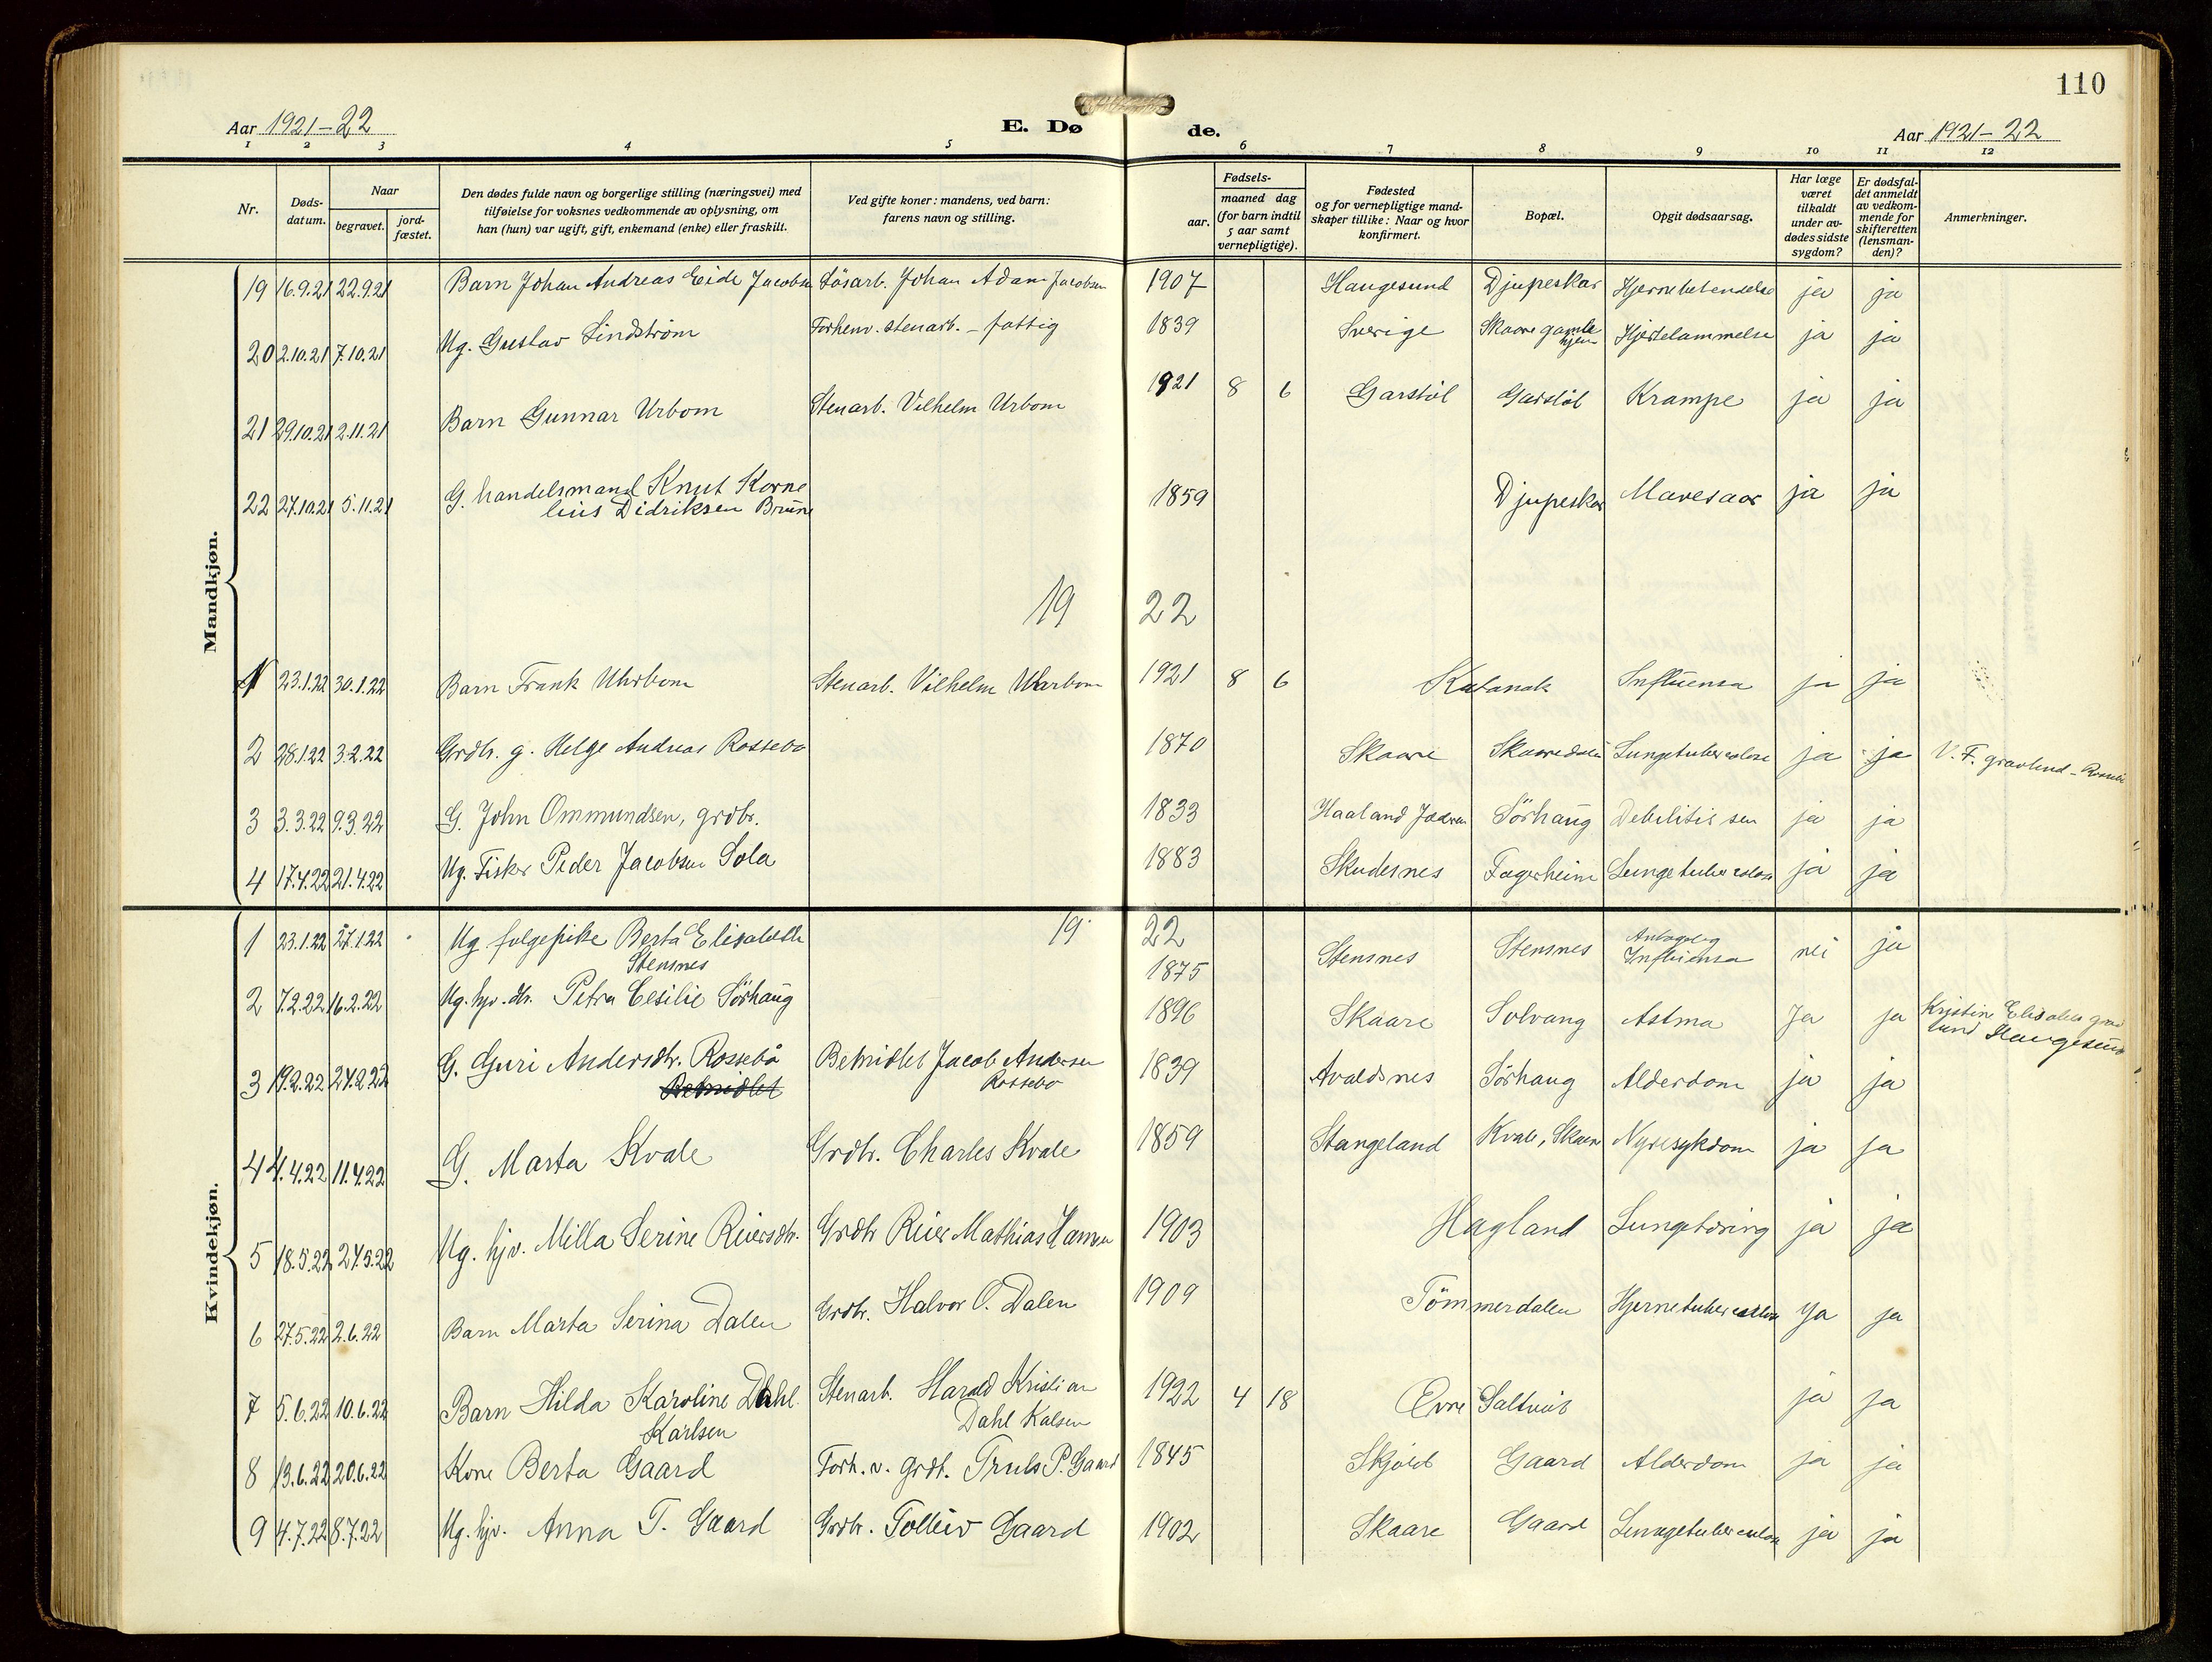 110
Aar 1921-22
E. Dø de.
Aar 1921-22
1 2 3 4 5 6 7 8 9 10 11 12
Nr.
Døds-
datum.
Naar
begravet.
jord-
fæstet.
Den dødes fulde navn og borgerlige stilling (næringsvei) med
tilføielse for voksnes vedkommende av oplysning, om
han (hun) var ugift, gift, enkemand (enke) eller fraskilt.
Ved gifte koner: mandens, ved barn:
farens navn og stilling.
Fødsels-
aar.
maaned dag
(for barn indtil
5 aar samt
vernepligtige).
Fødested
og for vernepligtige mand-
skaper tillike: Naar og hvor
konfirmert.
Bopæl.
Opgit dødsaarsag.
Har læge
været
tilkaldt
under av-
dødes sidste
sygdom?
Er dødsfal-
det anmeldt
av vedkom-
mende for
skifteretten
(lensman-
den)?
Anmerkninger.
Mandkjøn.
19 16.9.21 22.9.21 Barn Johan Andreas Eide Jacobsen Løsarb. Johan Adam Jacobsen 1907 Haugesund Djupeskar Hjernebetendelse ja ja
20 2.10.21 7.10.21 Ug. Gustav Lindström Forhenv. stenarb. - fattig 1839 Sverige Skaare gamle
hjem Hjertelammelse ja ja
21 29.10.21 2.11.21 Barn Gunnar Urbom Stenarb. Vilhelm Urbom 1921 8 6 Garstöl Garstöl Krampe ja ja
22 27.10.21 5.11.21 G. handelsmand Knut Korne
lius Didriksen Brune 1859 Djupeskar Mavesaar ja ja
19 22
1 23.1.22 30.1.22 Barn Frank Uhrbom Stenarb. Vilhelm Uhrbom 1921 8 6 Influensa ja ja
2 28.1.22 3.2.22 Grdbr. g. Helge Andreas Rossebø 1870 Skaare Skaaredalen Lungetuberculose ja ja V. F. gravlund - Rossebø
3 3.3.22 9.3.22 G. John Ommundsen, grdbr. 1833 Haaland Jæderen Sörhaug Debilitis sen ja ja
4 17.4.22 21.4.22 Ug. Fisker Peder Jacobsen Sola 1883 Skudesnes Fagerheim Lungetuberculose ja ja
Kvindekjøn.
19 22
1 23.1.22 27.1.22 Ug følgepike Berta Elisabeth
Stensnes 1875 Stensnes Stensnes Antagelig
Influensa nei ja
2 7.2.22 16.2.22 Ug. hjv. dtr. Petra Cesilie Sörhaug 1896 Skaare Solvang Astma Ja ja Kristine Elisabets grav
lund Haugesund
3 19.2.22 27.2.22 G. Guri Andersdtr. Rossebö Bemidlet Jacob Andersen
Bemidlet Rossebo 1839 Avaldsnes Sörhaug Alderdom ja ja
4 4.4.22 11.4.22 G. Marta Kvale Grdbr. Charles Kvale 1859 Stangeland Kvale, Skaare Nyresykdom ja ja
5 18.5.22 24.5.22 Ug. hjv. Milla Serine Reiersdtr. Grdbr Reier Mathias Hansen 1903 Hagland Lungetæring ja ja
6 27.5.22 2.6.22 Barn Marta Serina Dalen Grdbr. Halvor O. Dalen 1909 Tömmerdalen Hjernetuberculose ya ja
7 5.6.22 10.6.22 Barn Hilda Karoline Dahl
Karlsen Stenarb. Harald Kristian
Dahl Kalsen 1922 4 18 Øvre Saltveit ja ja
8 13.6.22 20.6.22 Kone Berta Gaard Forh. v. grdb. Truls P. Gaard 1845 Skjold Gaard Alderdom ja ja
9 4.7.22 8.7.22 Ug. hjv. Anna T. Gaard Grdbr. Tolleiv Gaard 1902 Skaare Gaard Lungetuberculose ja ja